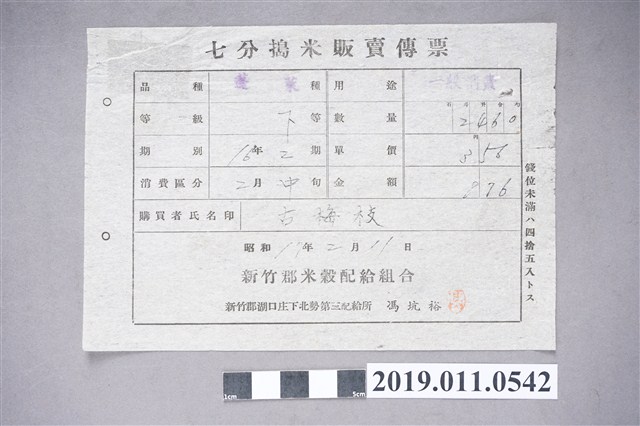 七分搗米販賣傳票
品種 蓬萊種 用途 一般消費
等級 下等 數量 石斗升合勺 2460
期別 16年2期 單價 円 3 56
消費區分 2月中旬 金額 876
購買者氏名印 古梅枝
昭和17年2月11日
新竹郡米穀配給組合
新竹郡湖口庄下北勢第三配給所 馮坑裕
錢位未滿ハ四捨五入トス
1cm 5cm
2019.011.0542